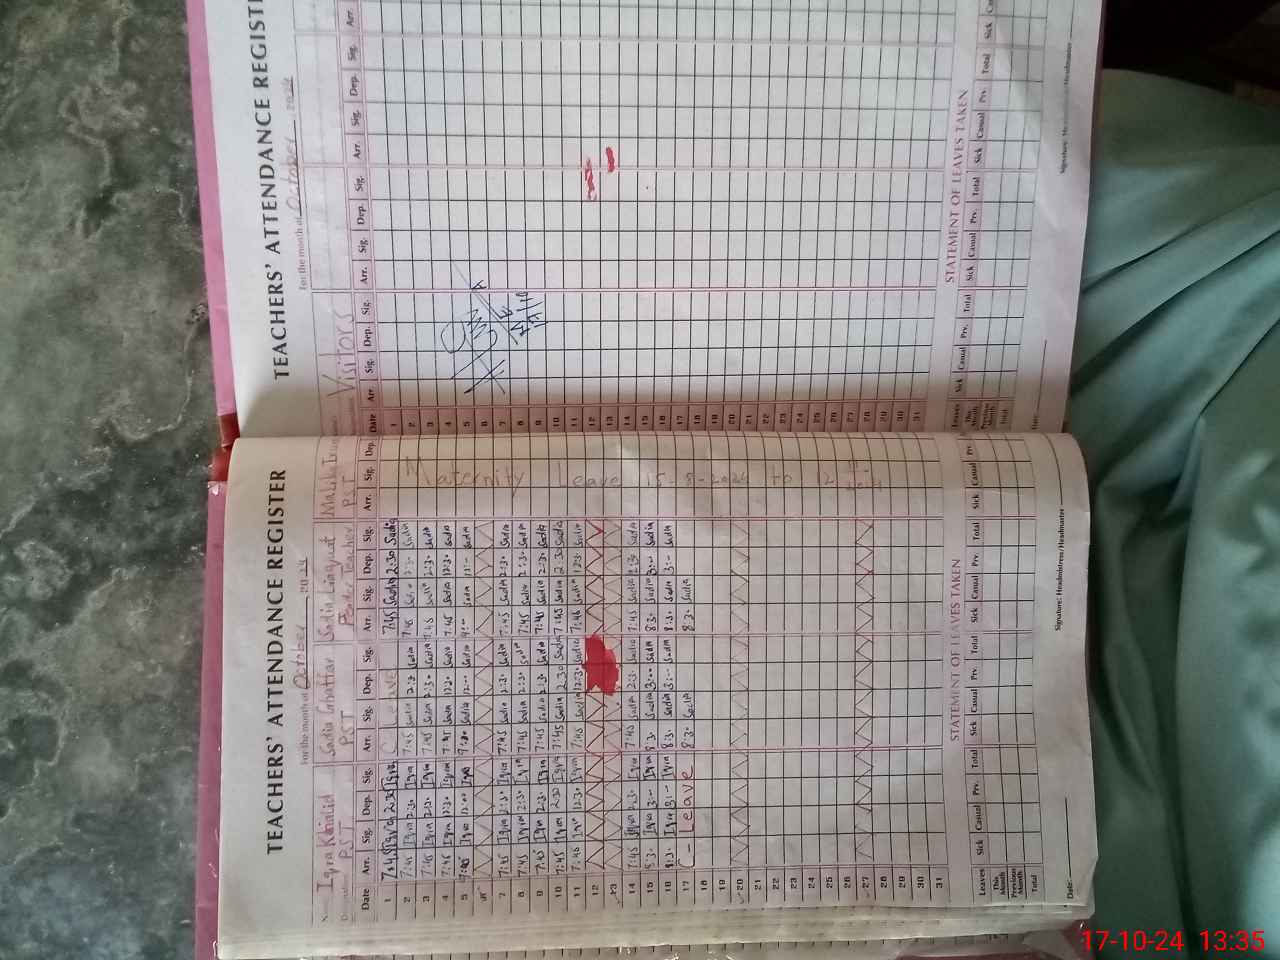 TEACHERS' ATTENDANCE REGISTER
For the month of October 2024
Iqra Khalid Sadia Ghaffar Sadia Liaquat Maliha
PST PST Teacher PST
Date Arr. Sig. Dep. Sig. Arr. Sig. Dep. Sig. Arr. Sig. Dep. Sig. Arr. Sig. Dep.
1 7:45 Iqra 2:30 Iqra C Leave 7:45 Sadia 2:30 Sadia
2 7:45 Iqra 2:30 Iqra 7:45 Sadia 2:30 Sadia 7:45 Sadia 2:30 Sadia
3 7:45 Iqra 2:30 Iqra 7:45 Sadia 2:30 Sadia 7:45 Sadia 2:30 Sadia
4 7:45 Iqra 12:30 Iqra 7:45 Sadia 12:30 Sadia 7:45 Sadia 12:30 Sadia
5 Iqra 12:00 Iqra Sadia 12:00 Sadia Sadia Sadia
6
7 7:45 Iqra 2:30 Iqra 7:45 Sadia 2:30 Sadia 7:45 Sadia 2:30 Sadia
8 7:45 Iqra 2:30 Iqra 7:45 Sadia 2:30 Sadia 7:45 Sadia 2:30 Sadia
9 7:45 Iqra 2:30 Iqra 7:45 Sadia 2:30 Sadia 7:45 Sadia 2:30 Sadia
10 7:45 Iqra 2:30 Iqra 7:45 Sadia 2:30 Sadia 7:45 Sadia 2:30 Sadia
11 7:45 Iqra 12:30 Iqra 7:45 Sadia 12:30 Sadia 7:45 Sadia 12:30 Sadia
12
13
14 7:45 Iqra 2:30 Iqra 7:45 Sadia 2:30 Sadia 7:45 Sadia 2:30 Sadia
15 8:30 Iqra 3:00 Iqra 8:30 Sadia 3:00 Sadia 8:30 Sadia 3:00 Sadia
16 8:30 Iqra 3:00 Iqra 8:30 Sadia 3:00 Sadia 8:30 Sadia 3:00 Sadia
17 C - Leave 8:30 Sadia 8:30 Sadia
18
19
20
21
22
23
24
25
26
27
28
29
30
31
Maternity Leave 15-8-2024 to 12
STATEMENT OF LEAVES TAKEN
Leaves Sick Casual Prv. Total Sick Casual Prv. Total Sick Casual Prv. Total Sick Casual Prv.
This Month
Previous Month
Total
Date: Signature: Headmistress/Headmaster
TEACHERS' ATTENDANCE REGISTER
For the month of October 2024
Visitors
Date Arr. Sig. Dep. Sig. Arr. Sig. Dep. Sig. Arr. Sig. Dep. Sig. Arr.
1
2
3
4
5
6
7
8
9
10
11
12
13
14
15
16
17
18
19
20
21
22
23
24
25
26
27
28
29
30
31
STATEMENT OF LEAVES TAKEN
Leaves Sick Casual Prv. Total Sick Casual Prv. Total Sick Casual Prv. Total Sick
This Month
Previous Month
Total
17-10-24 13:35